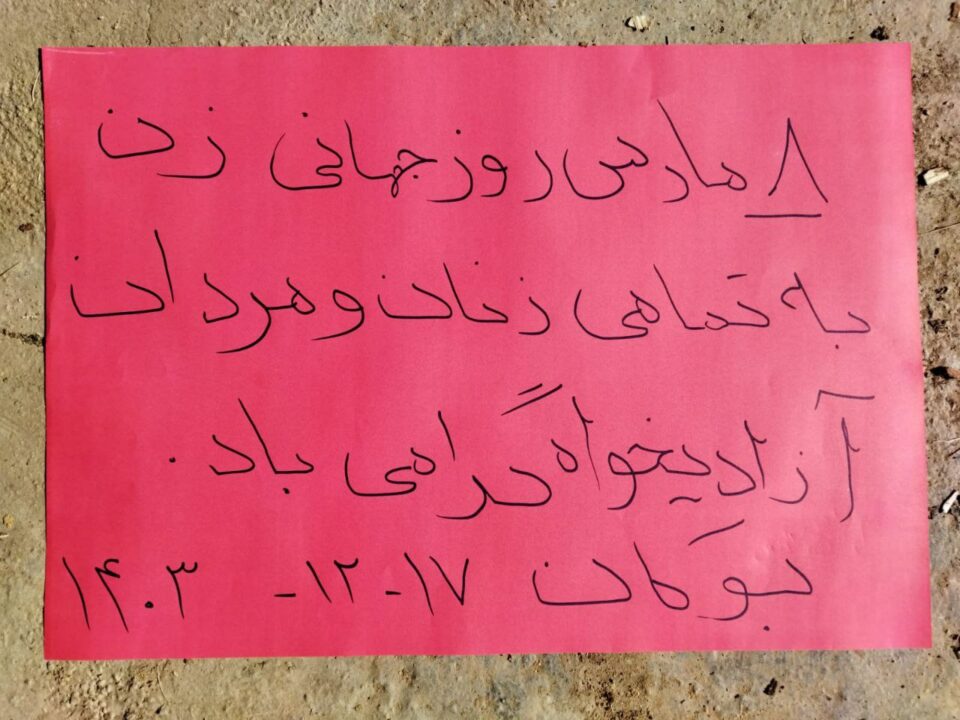 ۸ مارس روز جهانی زن
به تمامی زنان و مردان
آزادیخواه گرامی باد.
بوکان ۱۷-۱۲- ۱۴۰۳